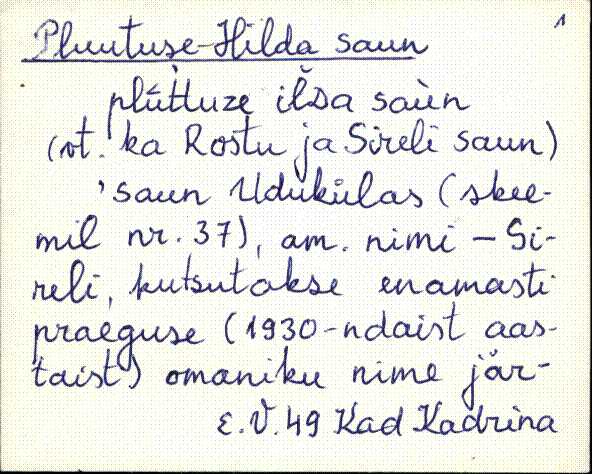 1
Pluutuse-Hilda saun
plūt̀tuze il̆ᴅa saùn
(vt. ka Rostu ja Sireli saun)
'saun Udukülas (skee-
mil nr. 37), am. nimi – Si-
reli, kutsutakse enamasti
praeguse (1930-ndaist aas-
taist) omaniku nime jär-
E.V. 49 Kad Kadrina